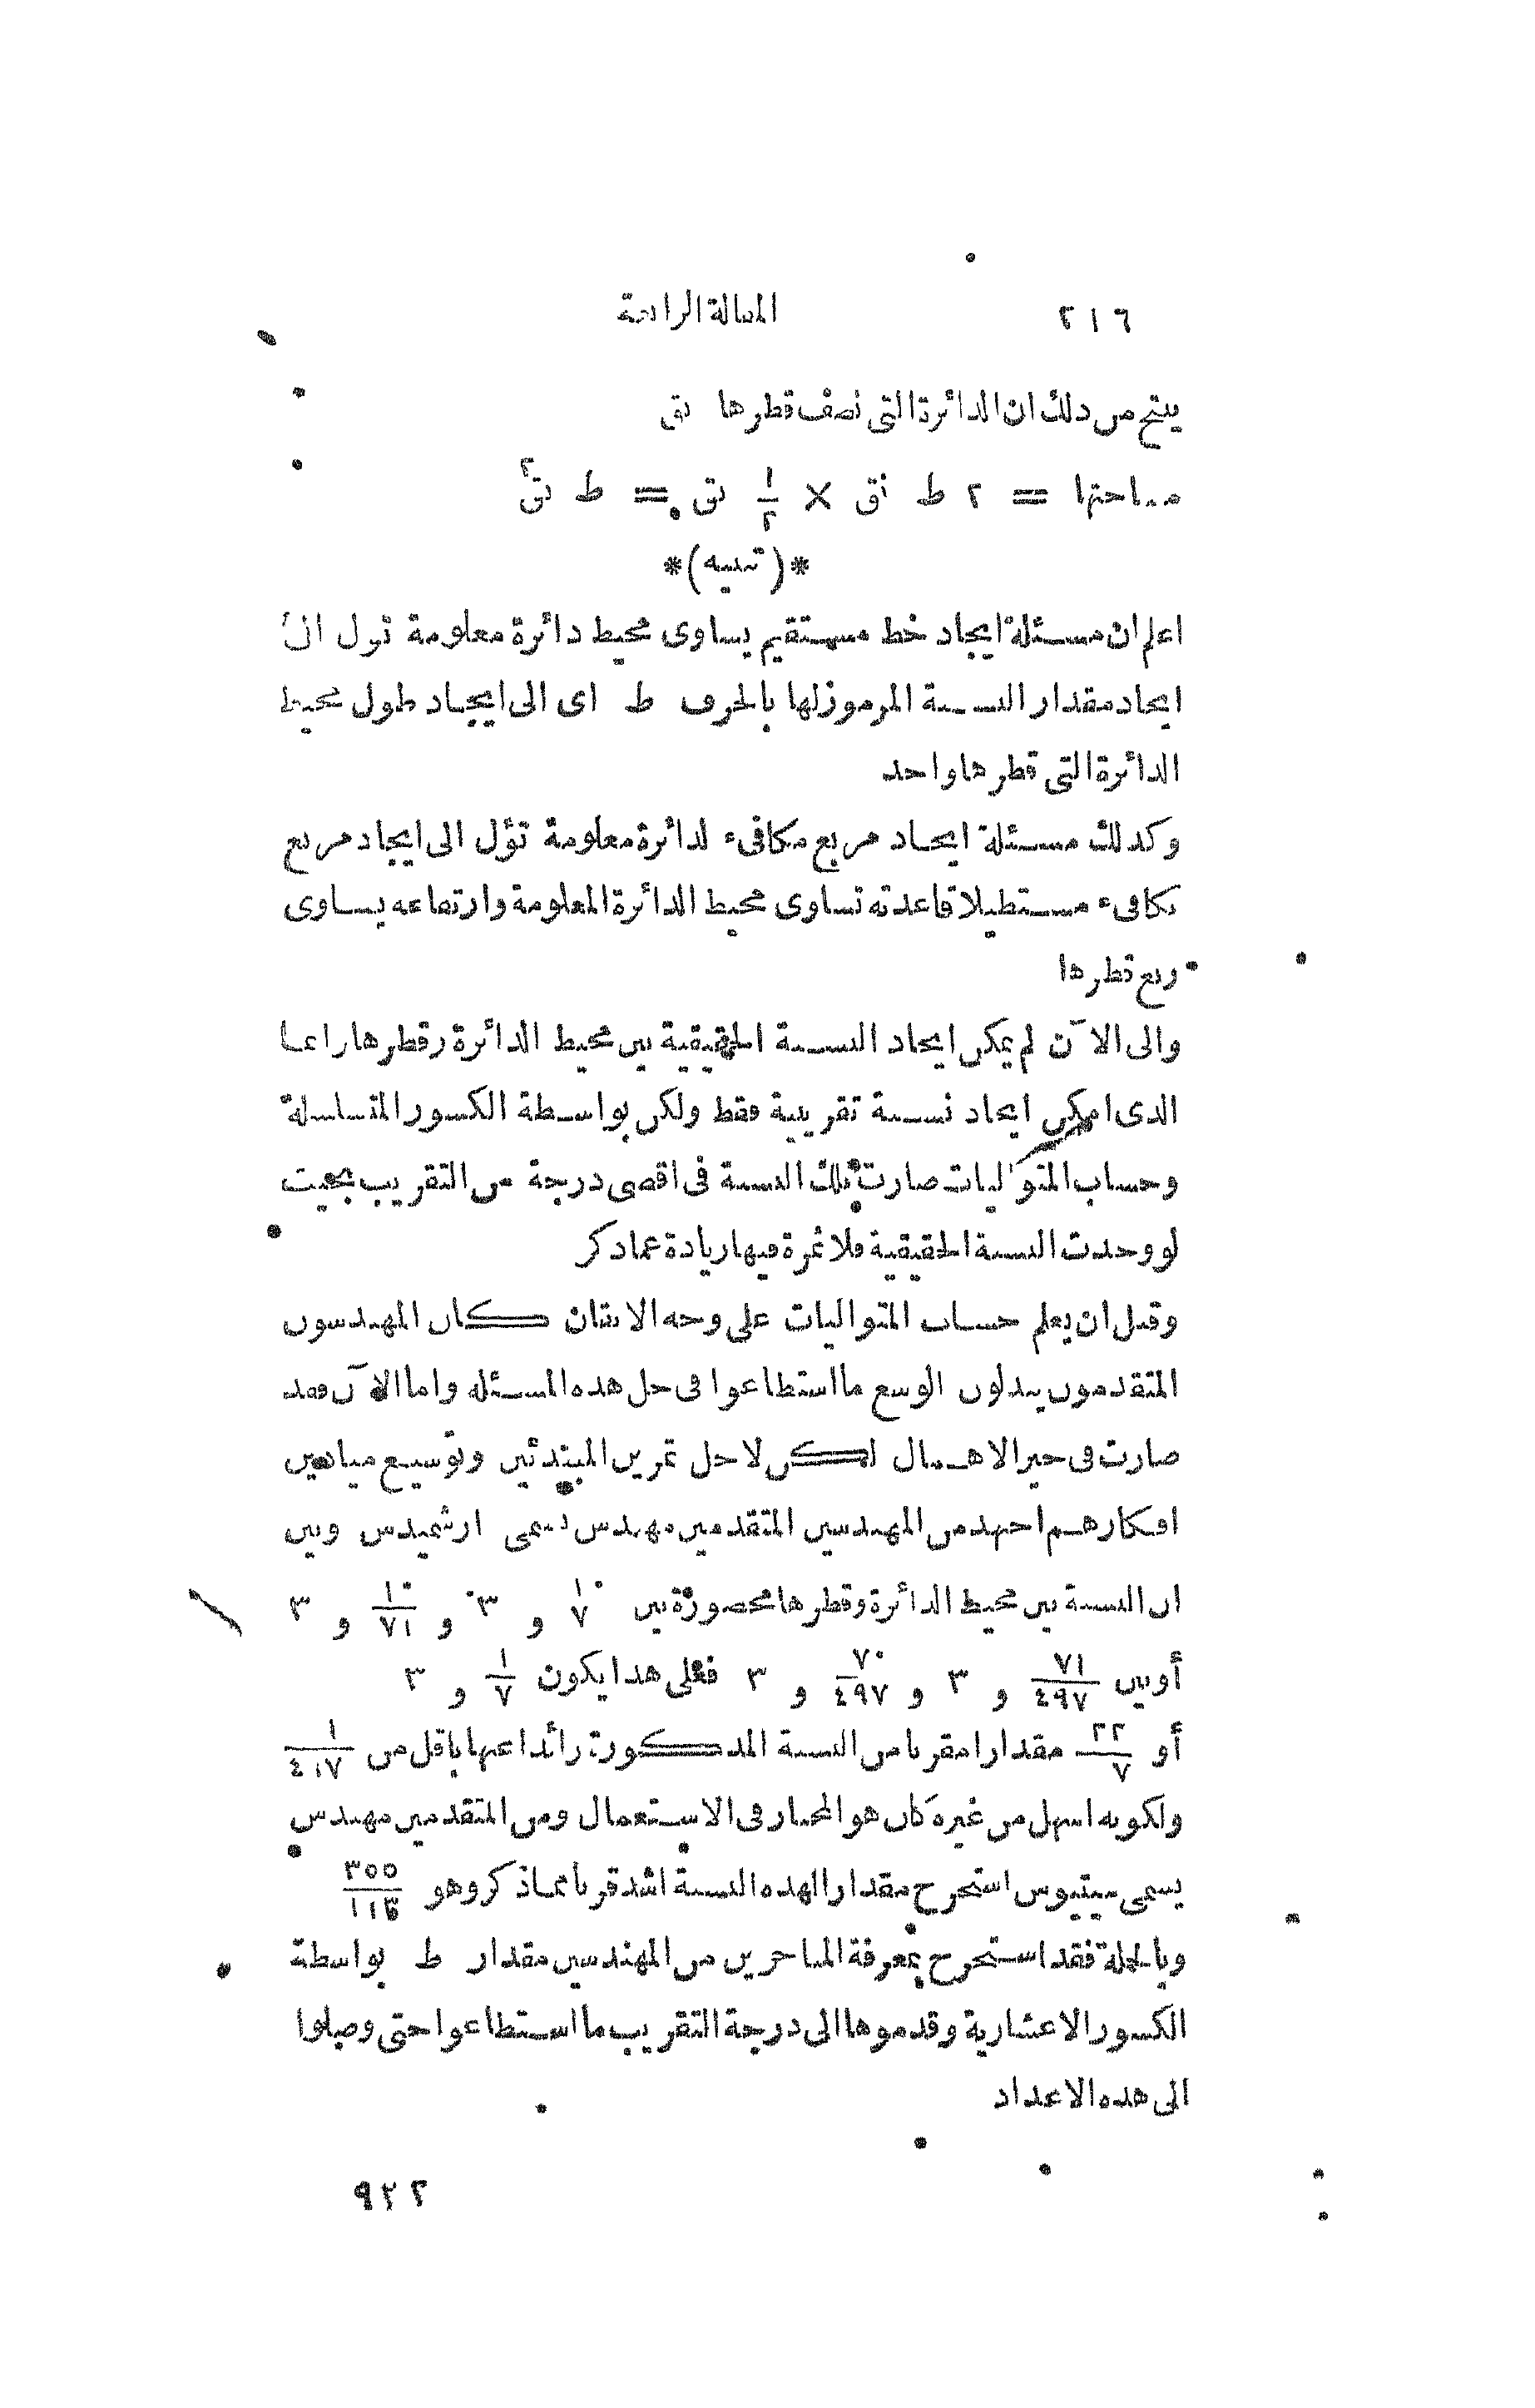 ٢١٦ المقالة الرابعة
ينتج من ذلك ان الدائرة التى نصف قطرها نق
مساحتها = ٢ ط نق × ١/٢ نق = ط نق٢
*(تنبيه)*
اعلم ان مسئلة ايجاد خط مستقيم يساوى محيط دائرة معلومة تؤل الى
ايجاد مقدار النسبة المرموز لها بالحرف ط اى الى ايجاد طول محيط
الدائرة التى قطرها واحد
وكذلك مسئلة ايجاد مربع مكافىء لدائرة معلومة تؤل الى ايجاد مربع
يكافىء مستطيلا قاعدته تساوى محيط الدائرة المعلومة وارتفاعه يساوى
ربع قطرها
والى الآن لم يمكن ايجاد النسبة الحقيقية بين محيط الدائرة وقطرها وانما
الذى امكن ايجاد نسبة تقريبية فقط ولكن بواسطة الكسور المتسلسلة
وحساب المتواليات صارت تلك النسبة فى اقصى درجة من التقريب بحيث
لو وجدت النسبة الحقيقية فلا ثمرة فيها زيادة عما ذكر
وقبل ان يعلم حساب المتواليات على وجه الاتقان كان المهندسون
المتقدمون يبذلون الوسع ما استطاعوا فى حل هذه المسئلة واما الآن فقد
صارت فى حيز الاهمال لكن لاجل تمرين المبتدئين وتوسيع ميادين
افكارهم اجتهد من المهندسين المتقدمين مهندس يسمى ارشميدس وبين
ان النسبة بين محيط الدائرة وقطرها محصورة بين ١/٧ و ٣ و ١٠/٧١ و ٣
أو بين ٧١/٤٩٧ و ٣ و ٧٠/٤٩٧ و ٣ فعلى هذا يكون ١/٧ و ٣
أو ٢٢/٧ مقدارا مقربا من النسبة المذكورة زائدا عنها باقل من ١/٤٩٧
ولكونه اسهل من غيره كان هو المختار فى الاستعمال ومن المتقدمين مهندس
يسمى ميتيوس استخرج مقدارا لهذه النسبة اشد قربا مما ذكر وهو ٣٥٥/١١٣
وبالجملة فقد استخرج بمعرفة المتاخرين من المهندسين مقدار ط بواسطة
الكسور الاعشارية وقدموها الى درجة التقريب ما استطاعوا حتى وصلوا
الى هذه الاعداد
٩٢٢